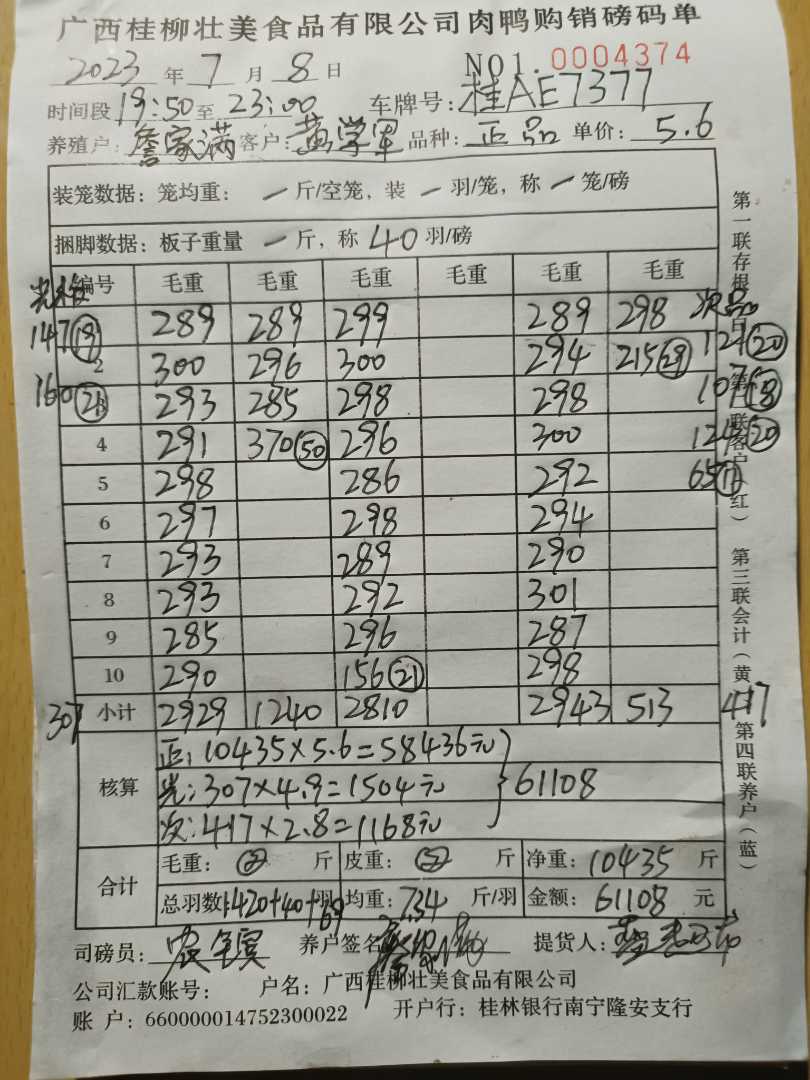 广西桂柳壮美食品有限公司肉鸭购销磅码单
2023 年 7 月 8 日 NO1. 0004374
时间段 19:50 至 23:00 车牌号: 桂AE7377
养殖户: 詹家满 客户: 黄学军 品种: 正品 单价: 5.6
装笼数据: 笼均重: 一 斤/空笼, 装 一 羽/笼, 称 一 笼/磅
捆脚数据: 板子重量 一 斤, 称 40 羽/磅
编号 毛重 毛重 毛重 毛重 毛重 毛重
147 (19) 289 289 299 289 298 次品
160 (21) 2 300 296 300 294 215(29) 124(20)
3 293 285 298 298 (18)
4 291 370(50) 296 300 (20)
5 298 286 292 65(11)
6 297 298 294
7 293 289 290
8 293 292 301
9 285 296 287
10 290 156(21) 298
307 小计 2929 1240 2810 2943 513 417
核算 正: 10435×5.6=58436元
光: 307×4.9=1504元 } 61108
次: 417×2.8=1168元
合计 毛重: 斤 皮重: 斤 净重: 10435 斤
总羽数: 1420+40+69 羽 均重: 7.34 斤/羽 金额: 61108 元
司磅员: 养户签名: 提货人:
公司汇款账号: 户名: 广西桂柳壮美食品有限公司
账 户: 660000014752300022 开户行: 桂林银行南宁隆安支行
第一联存根
第三联会计(黄
第四联养户(蓝)